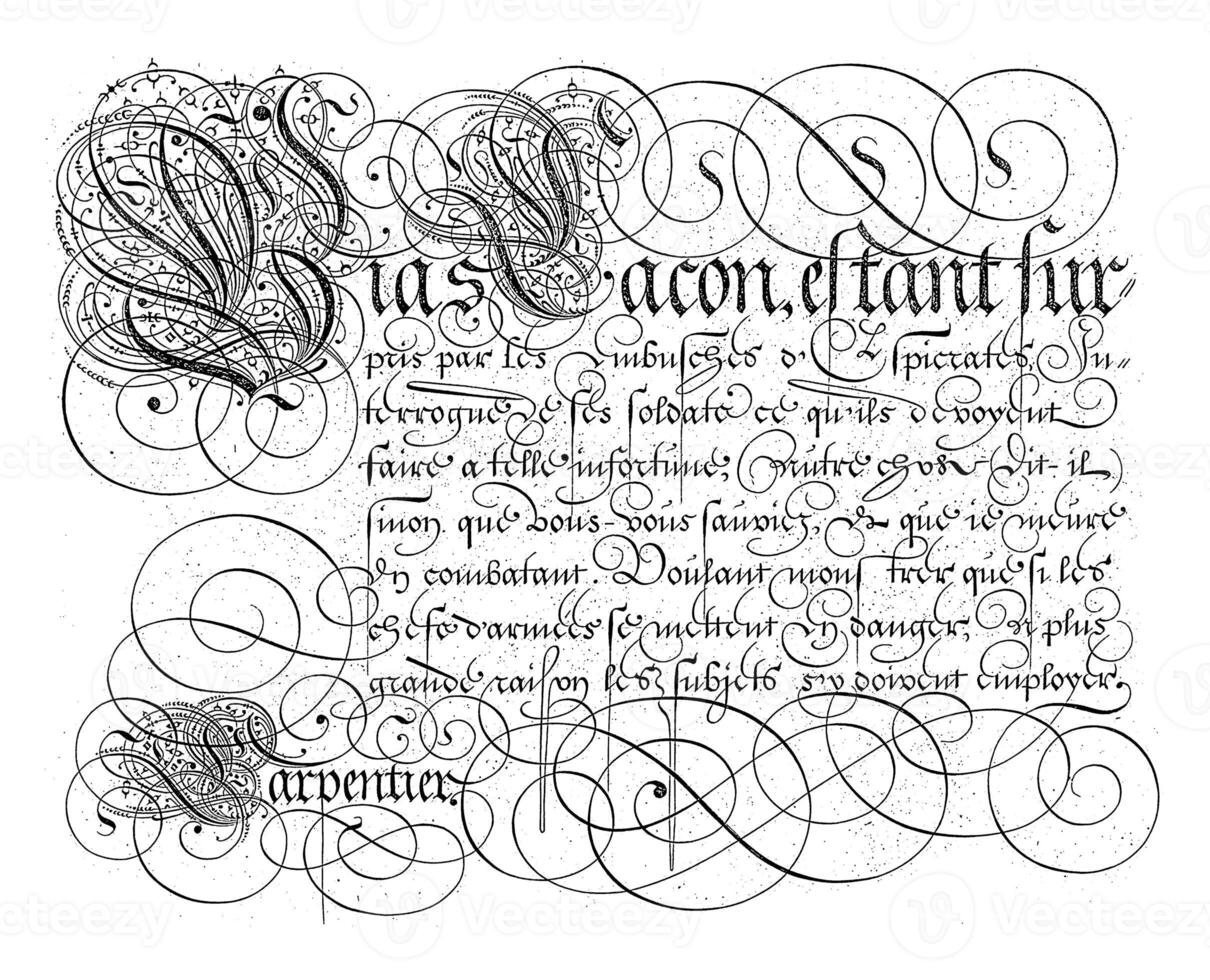 Bias Lacon, estant sur-
pris par les Embusches d'Espicrates, In-
terrogue de ses soldats ce qu'ils devoyent
faire a telle infortune, (Autre chose (dit-il)
sinon que vous-vous sauviez, Et que ie meure
En combatant. Voulant monstrer que si les
chefs d'armees se mettent En danger, A plus
grande raison les subjets s'y doivent employer.
Carpentier,
Vecteezy